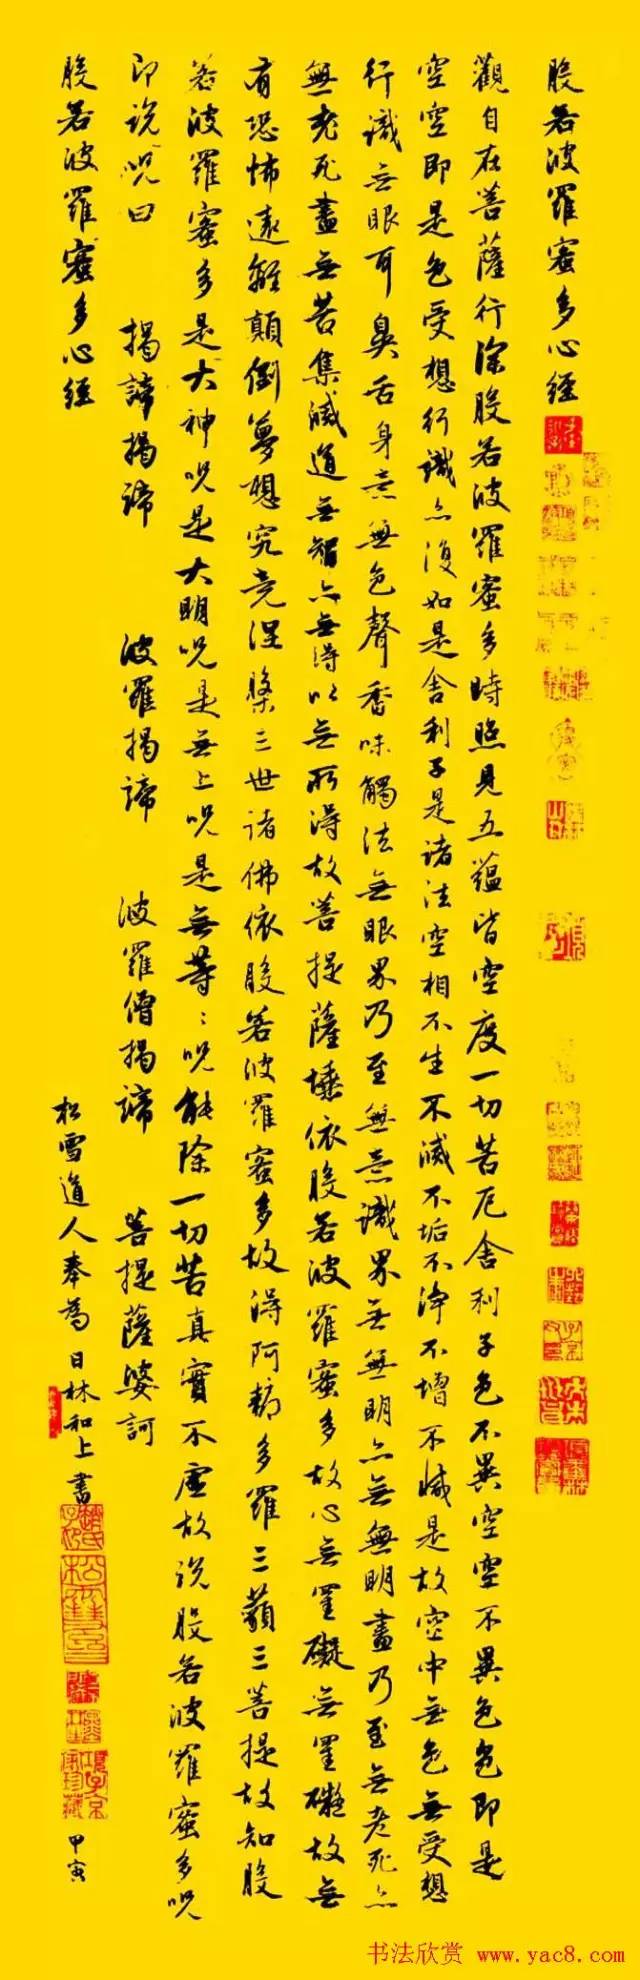 般若波羅蜜多心經
觀自在菩薩行深般若波羅蜜多時照見五蘊皆空度一切苦厄舍利子色不異空空不異色色即是
空空即是色受想行識亦復如是舍利子是諸法空相不生不滅不垢不淨不增不減是故空中無色無受想
行識無眼耳鼻舌身意無色聲香味觸法無眼界乃至無意識界無無明亦無無明盡乃至無老死亦
無老死盡無苦集滅道無智亦無得以無所得故菩提薩埵依般若波羅蜜多故心無罣礙無罣礙故無
有恐怖遠離顛倒夢想究竟涅槃三世諸佛依般若波羅蜜多故得阿耨多羅三藐三菩提故知般
若波羅蜜多是大神呪是大明呪是無上呪是無等々呪能除一切苦真實不虛故說般若波羅蜜多呪
即說呪曰 揭諦揭諦 波羅揭諦 波羅僧揭諦 菩提薩婆訶
般若波羅蜜多心經
松雪道人奉為日林和上書
趙氏子昂
項子京家珍藏
甲寅
书法欣赏 www.yac8.com